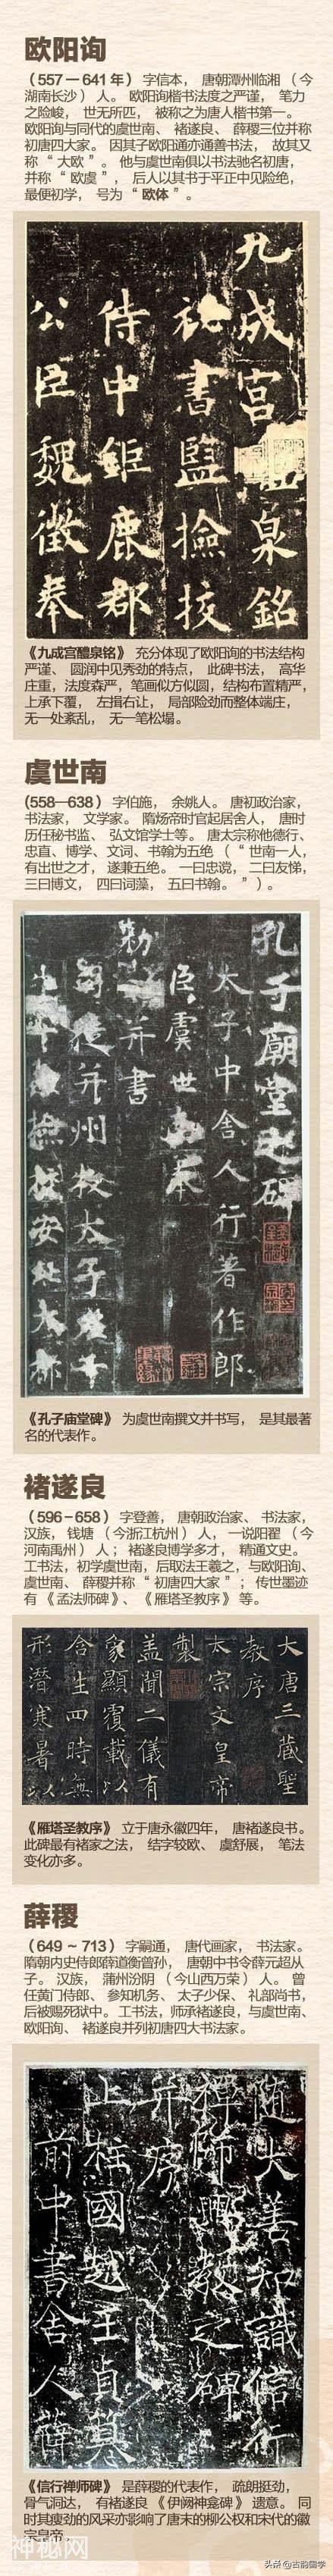 欧阳询
（557－641年） 字信本， 唐朝潭州临湘 （今
湖南长沙） 人。 欧阳询楷书法度之严谨， 笔力
之险峻， 世无所匹， 被称之为唐人楷书第一。
欧阳询与同代的虞世南、 褚遂良、 薛稷三位并称
初唐四大家。 因其子欧阳通亦通善书法， 故其又
称“大欧”。 他与虞世南俱以书法驰名初唐，
并称“欧虞”， 后人以其书于平正中见险绝，
最便初学， 号为“欧体”。
九成宫
泉銘
祕書監撿挍
侍中鉅鹿郡
公臣魏徵奉
《九成宫醴泉铭》 充分体现了欧阳询的书法结构
严谨、 圆润中见秀劲的特点， 此碑书法， 高华
庄重，法度森严，笔画似方似圆，结构布置精严，
上承下覆， 左揖右让， 局部险劲而整体端庄，
无一处紊乱， 无一笔松塌。
虞世南
(558—638） 字伯施， 余姚人。 唐初政治家，
书法家， 文学家。 隋炀帝时官起居舍人， 唐时
历任秘书监、 弘文馆学士等。 唐太宗称他德行、
忠直、博学、文词、书翰为五绝 （“世南一人，
有出世之才， 遂兼五绝。 一曰忠谠，二曰友悌，
三曰博文， 四曰词藻， 五曰书翰。”）。
孔子廟堂之碑
太子中舍人行著作郎
臣虞世南奉
勑并書
并州
大子
安
大都
《孔子庙堂碑》 为虞世南撰文并书写， 是其最著
名的代表作。
褚遂良
（596－658） 字登善， 唐朝政治家、 书法家，
汉族， 钱塘 （今浙江杭州） 人， 一说阳翟 （今
河南禹州） 人； 褚遂良博学多才， 精通文史。
工书法，初学虞世南，后取法王羲之，与欧阳询、
虞世南、 薛稷并称“初唐四大家”； 传世墨迹
有 《孟法师碑》、 《雁塔圣教序》 等。
大唐三藏聖
教序
太宗文皇帝
製
盖聞二儀有
象顯覆載以
含生四時無
形潛寒暑以
《雁塔圣教序》 立于唐永徽四年， 唐褚遂良书。
此碑最有褚家之法， 结字较欧、虞舒展， 笔法
变化亦多。
薛稷
（649 ~ 713） 字嗣通， 唐代画家， 书法家。
隋朝内史侍郎薛道衡曾孙， 唐朝中书令薛元超从
子。 汉族， 蒲州汾阴 （今山西万荣） 人。 曾
任黄门侍郎、 参知机务、 太子少保、 礼部尚书，
后被赐死狱中。 工书法，师承褚遂良，与虞世南、
欧阳询、 褚遂良并列初唐四大书法家。
随大善知識信行
禪師興教之碑
并序
止柱國越王貞撰
前中書舍人薛
《信行禅师碑》 是薛稷的代表作， 疏朗挺劲，
骨气洞达， 有褚遂良 《伊阙神龛碑》 遗意。 同
时其瘦劲的风采亦影响了唐末的柳公权和宋代的徽
宗皇帝。
神秘网
头条 @古韵国学